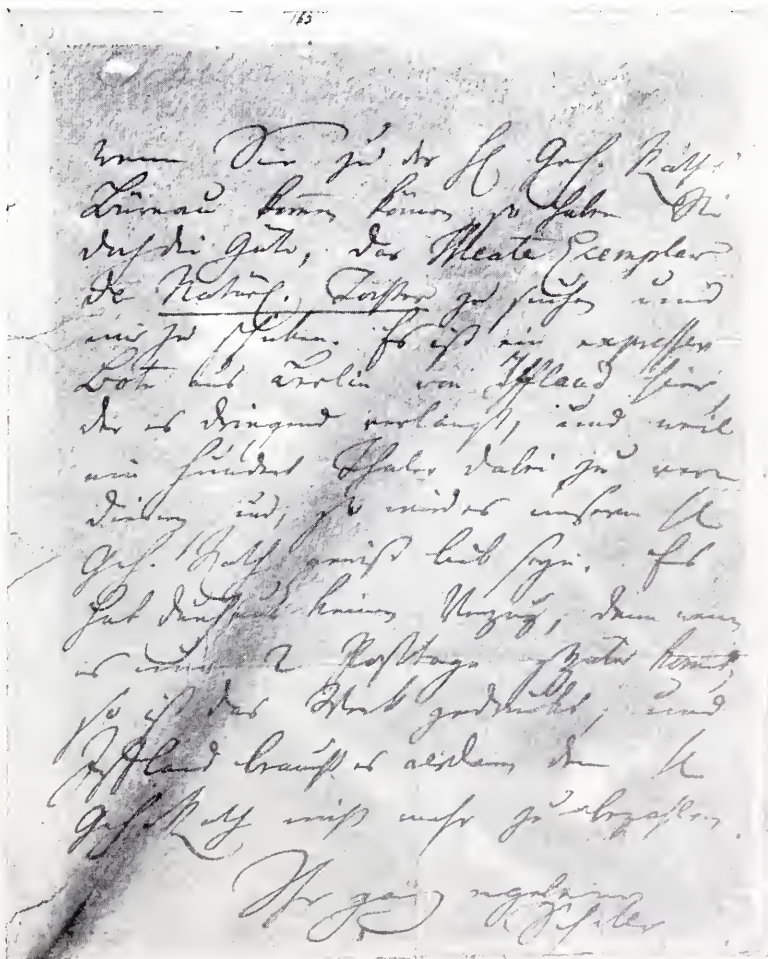 163
Wenn Sie zu der H. Geh. Raths
Büreau kommen können, so haben Sie
doch die Güte, das Exemplar
der Natürl. Tochter zu suchen und
mir zu schicken. Es ist ein expresser
Bote aus Berlin von Iffland hier,
der es dringend verlangt, und weil
ein hundert Thaler dabei zu ver
dienen sind, so wird es unserm H
Geh. Rath gewiß lieb seyn. Es
hat durchaus keinen Verzug, denn wenn
es nur 2 Posttage später kommt,
so ist das Werk gedruckt, und
Iffland braucht es alsdann dem H
Geh. Rath nicht mehr zu bezahlen.
Ihr ganz ergebener
Schiller